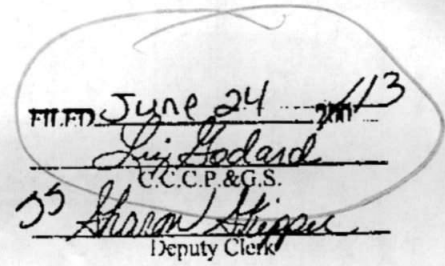 FILED June 24 2013
Liz Godard
C.C.C.P.&G.S.
Sharon Skipper
Deputy Clerk